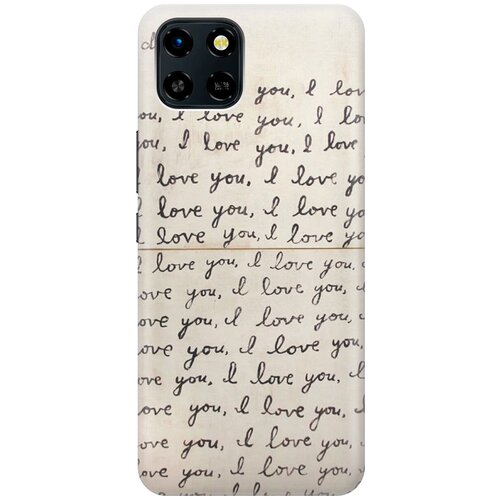 you, I lov
ou, I love you, I lov
you, I love you, I love
I love you, I love yo
I love you, I love yo
I love you, I love yo
I love you, I love you,
ove you, I love you,
ove you, I love you,
ove you, I love you,
ove you, I love you, I
ove you, I love you, I
ove you, I love you,
ove you, I love you,
I love you,